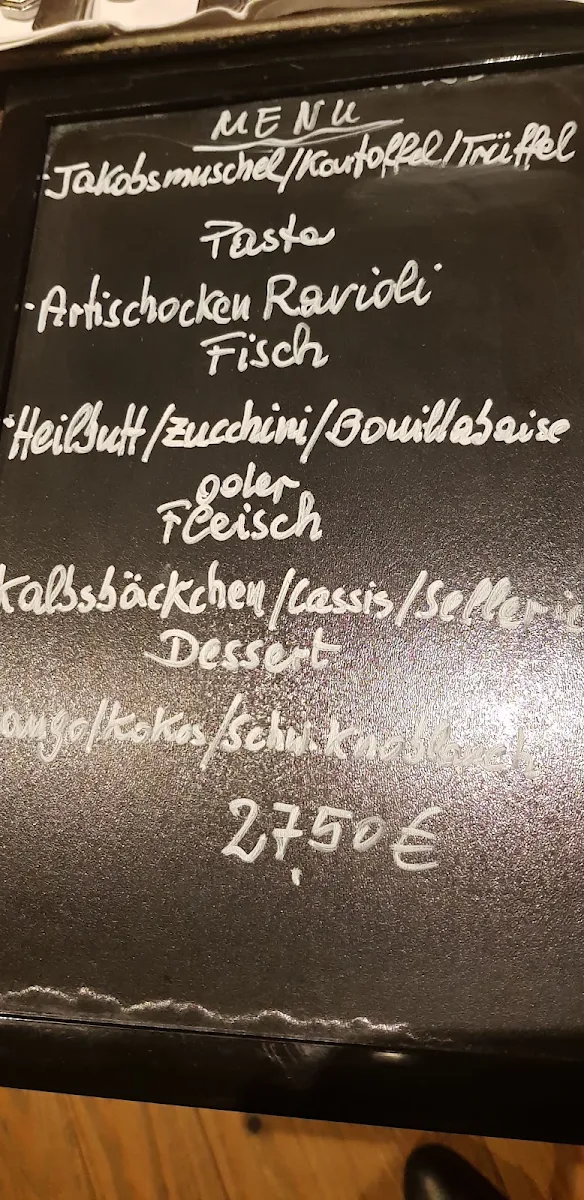 MENU
-Jakobsmuschel/Kartoffel/Trüffel
Pasta
-Artischocken Ravioli
Fisch
Heilbutt/Zucchini/Bouillabaise
oder
Fleisch
Kalbsbäckchen/Cassis/Sellerie
Dessert
ango/Kokos/Schw.Knoblauch
27,50€